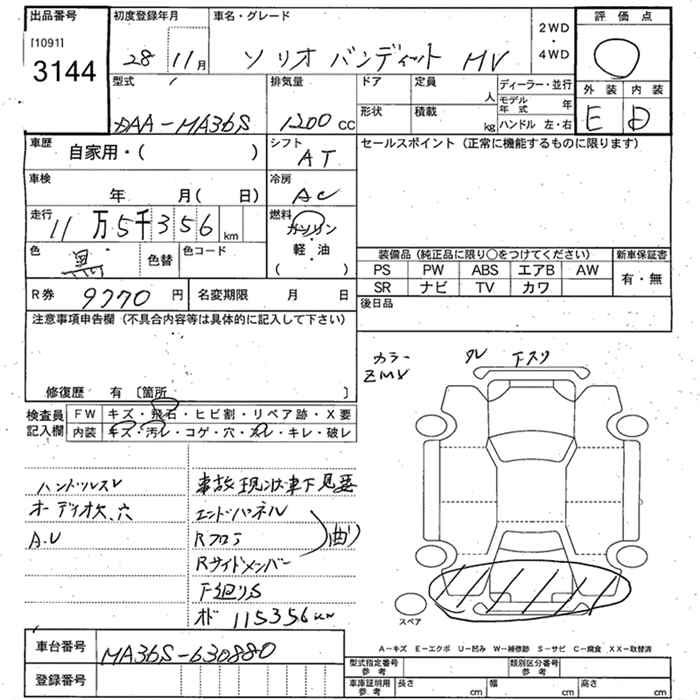 出品番号 初度登録年月 車名・グレード 2WD ・ 4WD 評価点
[1091]
3144 28 11月 ソリオ バンディット MV
型式 排気量 ドア 定員 人 ディーラー・並行 外装 内装
モデル年式 年
DAA-MA36S 1200cc 形状 積載 kg ハンドル 左・右 E D
車歴 自家用・( ) シフト AT セールスポイント(正常に機能するものに限ります)
車検 年 月( 日) 冷房 AC
走行 11万5千356km 燃料 ガソリン・軽油( )
色 黒 色替 色コード
装備品(純正品に限り○をつけてください) 新車保証書
PS PW ABS エアB AW 有・無
SR ナビ TV カワ
R券 9770円 名変期限 月 日 後日品
注意事項申告欄(不具合内容等は具体的に記入して下さい)
修復歴 有 〔箇所 〕
カラー ZMV
下スリ
検査員記入欄 FW キズ・飛石・ヒビ割・リペア跡・X要
内装 キズ・汚レ・コゲ・穴・カレ・キレ・破レ
ハンドルスレ 事故現状車下見要
オーディオ欠、穴 エンドパネル
A.V Rフロア 曲り
Rサイドメンバー
下廻りS
オド 115356km
スペア
A-キズ E-エクボ U-凹み W-補修跡 S-サビ C-腐食 XX-取替済
車台番号 MA36S-630880
型式指定番号 参考 類別区分番号 参考
登録番号 車庫証明用 参考 長さ cm 幅 cm 高さ cm